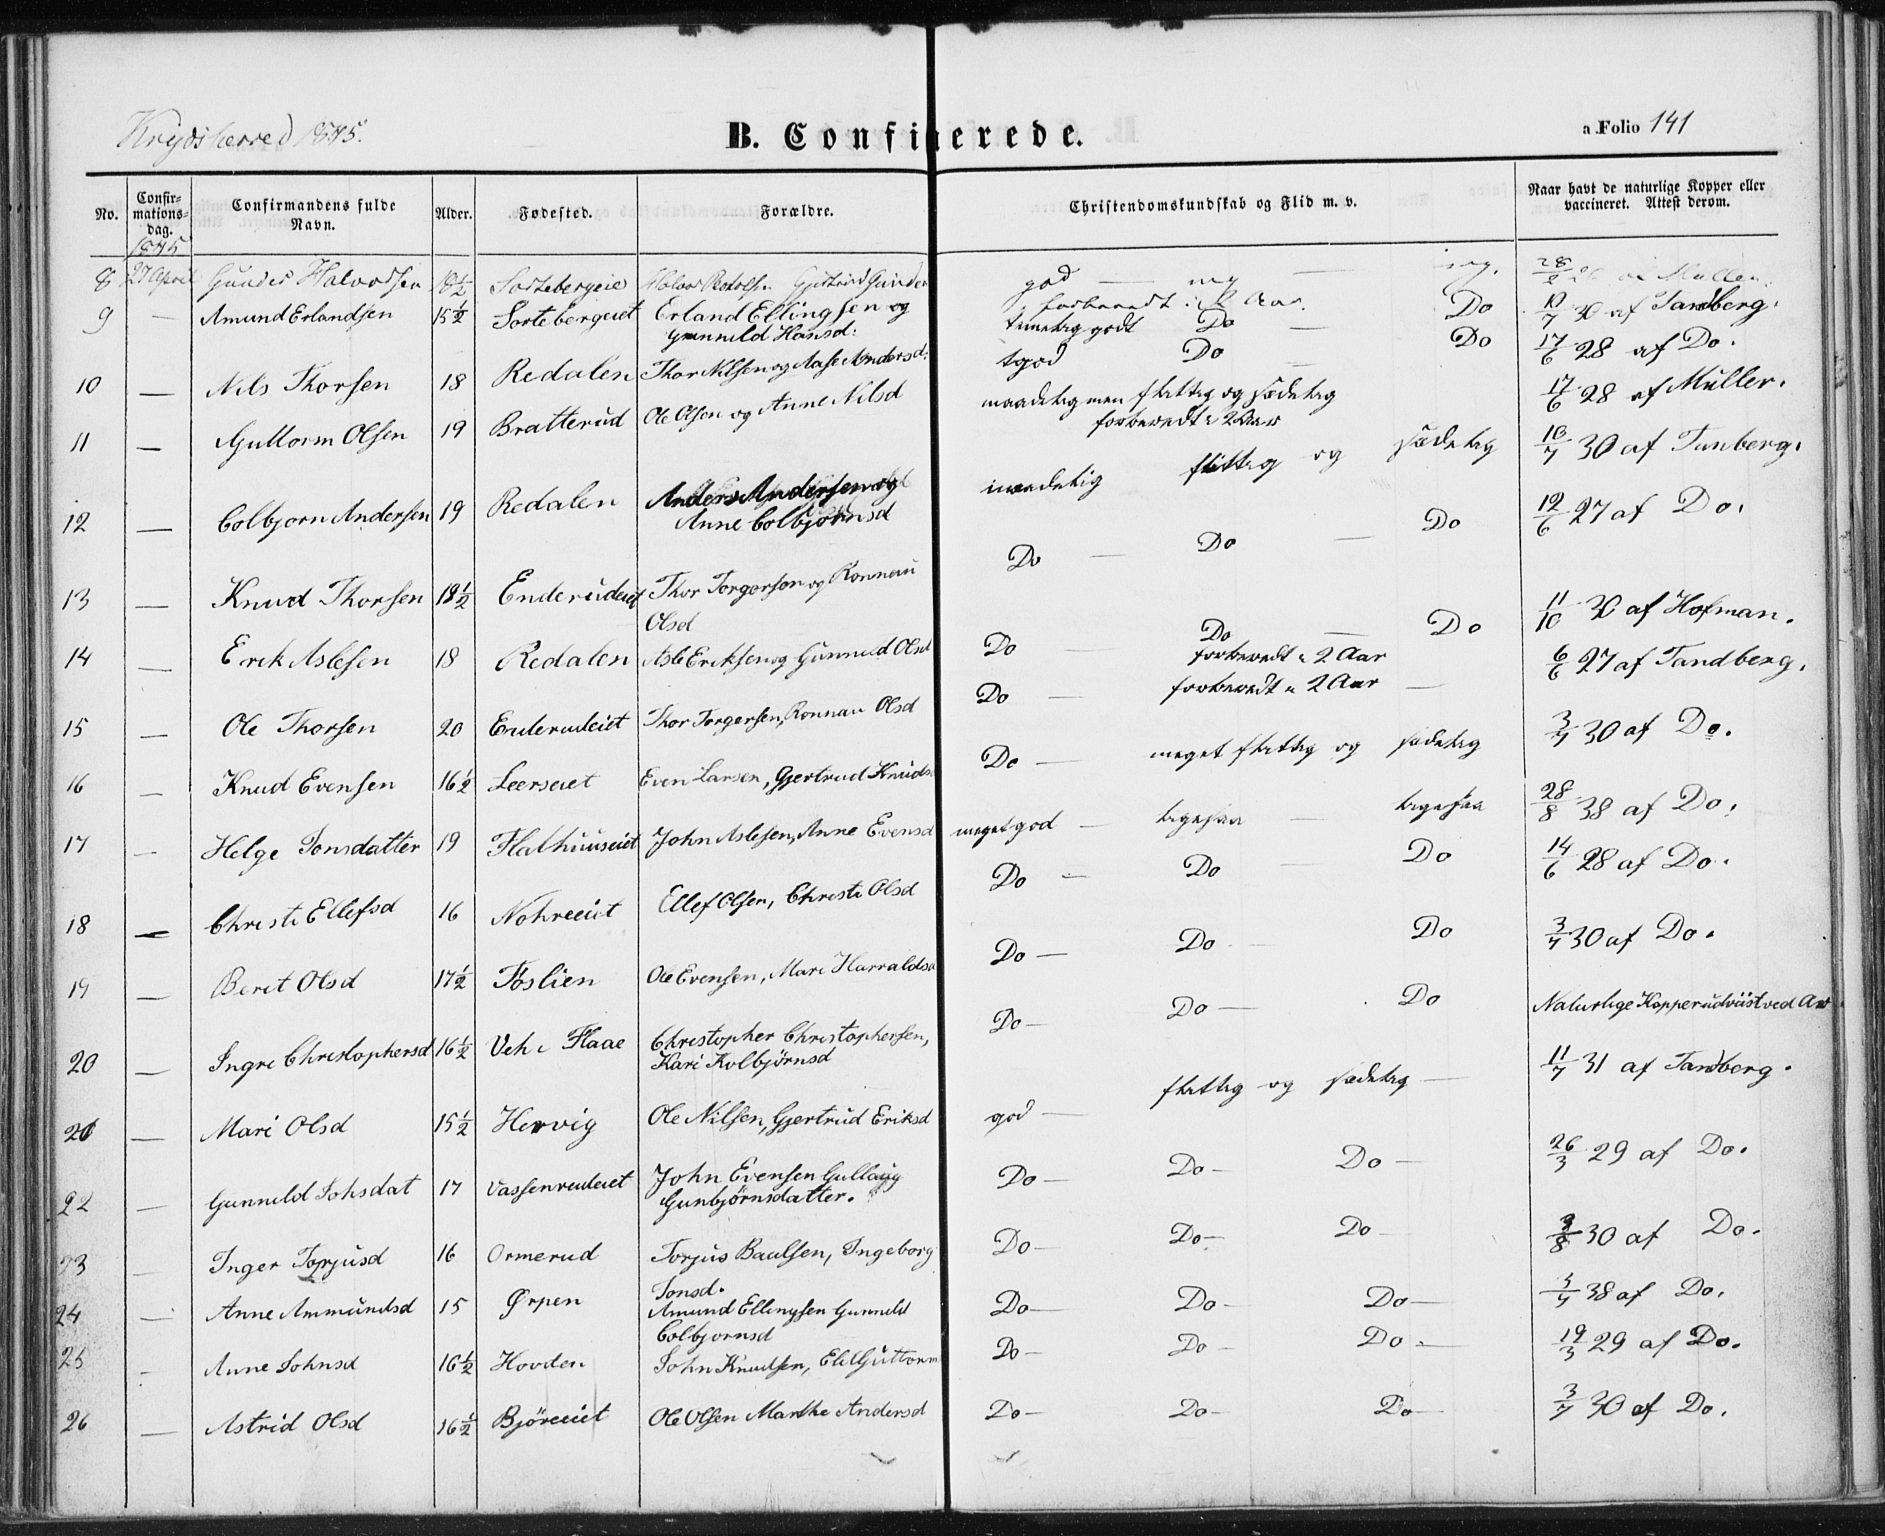 Krydsherred 1845.
B. Confirmerede.
a. Folio 141
No.
Confir-
mations-
dag.
Confirmandens fulde
Navn.
Alder.
Fødested.
Forældre.
Christendomskundskab og Flid m. v.
Naar havt de naturlige Kopper eller
vaccineret. Attest derom.
1845
8 27 April Gunder Halvorsen 18½ Sortebergeie god — mg — mg. 28/8 af Müller
forberedt i 2 Aar
9 — Amund Erlandsen 15½ Sortebergeiet Erland Ellingsen og temelig godt Do — Do 10/7 30 af Tandberg.
Gunnild Hansd:
10 — Nils Thorsen 18 Redalen Thor Nilsen og Aase Andersd: tgod Do — Do 17/6 28 af Do.
11 — Guttorm Olsen 19 Bratterud Ole Olsen og Anne Nilsd maadelig men flittig og sædelig 17/6 28 af Müller.
forberedt i 2 Aar
12 — Colbjorn Andersen 19 Redalen Anders Andersen og maadelig flittig og sædelig 10/7 30 af Tanberg.
Anne Colbjørnsd
13 — Knud Thorsen 18½ Enderudeiet Thor Torgersen og Ronnau Do — Do — Do 12/6 27 af Do.
Olsd
14 — Erik Aslesen 18 Redalen Asle Eriksen og Gunnild Olsd Do — Do — Do 11/10 30 af Hofman.
forberedt i 2 Aar
15 — Ole Thorsen 20 Enderudeiet Thor Torgersen, Ronnau Olsd Do — forberedt i 2 Aar — 6/6 27 af Tandberg.
16 — Knud Evensen 16½ Leerseiet Even Larsen, Gjertrud Knuds Do — meget flittig og sædelig 3/7 30 af Do.
17 — Helge Jonsdatter 19 Flathuuseiet John Aslesen, Anne Evensd meget god — ligesaa — ligesaa 28/8 38 af Do.
18 — Christi Ellefsd 16 Nohreeiet Ellef Olsen, Christi Olsd Do — Do — Do 14/6 28 af Do.
19 — Beret Olsd 17½ Föslien Ole Evensen, Mari Harraldsd Do — Do — Do 3/7 30 af Do.
20 — Ingri Christophersd 16½ Veh i Flaae Christopher Christophersen, Do — Do — Do Naturlige Kopper udviist ved Ar
Kari Kolbjørnsd
21 — Mari Olsd 15½ Hervig Ole Nilsen, Gjertrud Eriksd god — flittig og sædelig — 11/7 31 af Tandberg.
22 — Gunnild Johsdat 17 Vassenrudeiet John Evensen Gullaug Do — Do — Do — 26/3 29 af Do.
Gunbjørnsdatter.
23 — Inger Torjusd 16 Ormerud Torjus Baulsen, Ingeborg Do — Do — Do — 3/8 30 af Do.
Jonsd.
24 — Anne Ammundsd 15 Ørpen Amund Ellingsen Gunnild Do — Do — Do — 5/7 38 af Do.
Colbjornsd
25 — Anne Johnsd 16½ Hovden John Knudsen, Eli Guttorm Do — Do — Do — 19/3 29 af Do.
26 — Astrid Olsd 16½ Björeeiet Ole Olsen Marthe Andersd Do — Do — Do — 3/7 30 af Do.